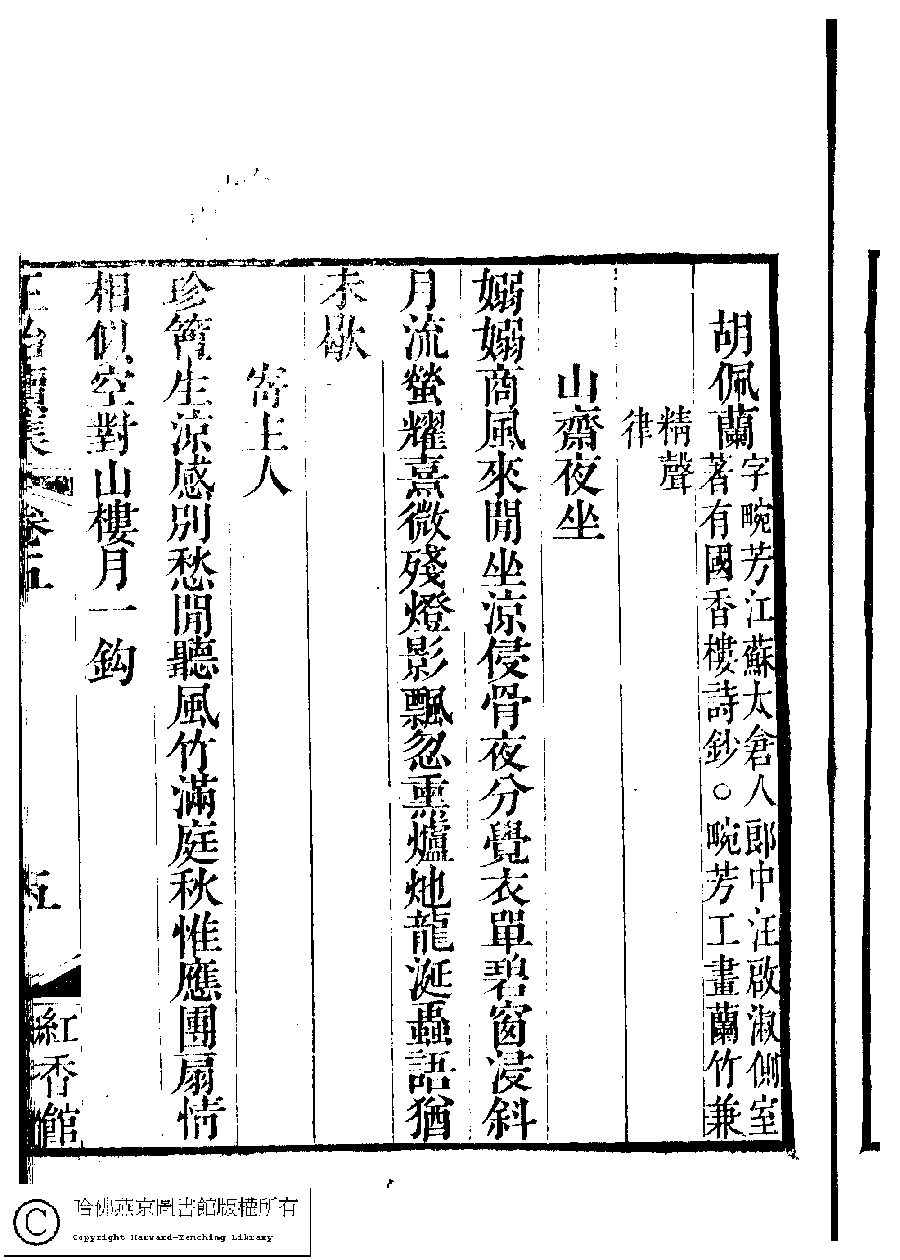 胡佩蘭字畹芳江蘇太倉人郎中汪啟淑側室
著有國香樓詩鈔○畹芳工畫蘭竹兼
精聲
律
山齋夜坐
嫋嫋商風來閒坐涼侵骨夜分覺衣單碧窗浸斜
月流螢耀熹微殘燈影飄忽熏爐灺龍涎蟲語猶
未歇
寄主人
珍簟生涼感別愁閒聽風竹滿庭秋惟應團扇情
相似空對山樓月一鈎
卷五
五
紅香館
哈佛燕京圖書館版權所有
Copyright Harvard-Yenching Library